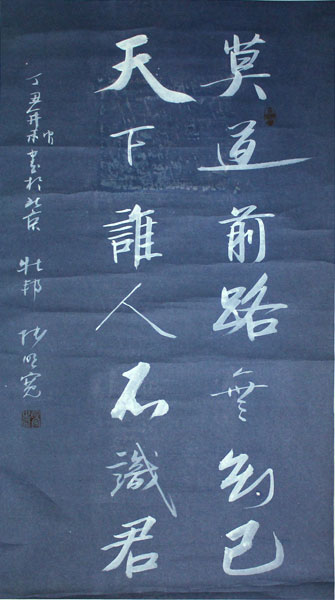 莫道前路無知己
天下誰人不識君
丁丑年末書於北京 壯邦